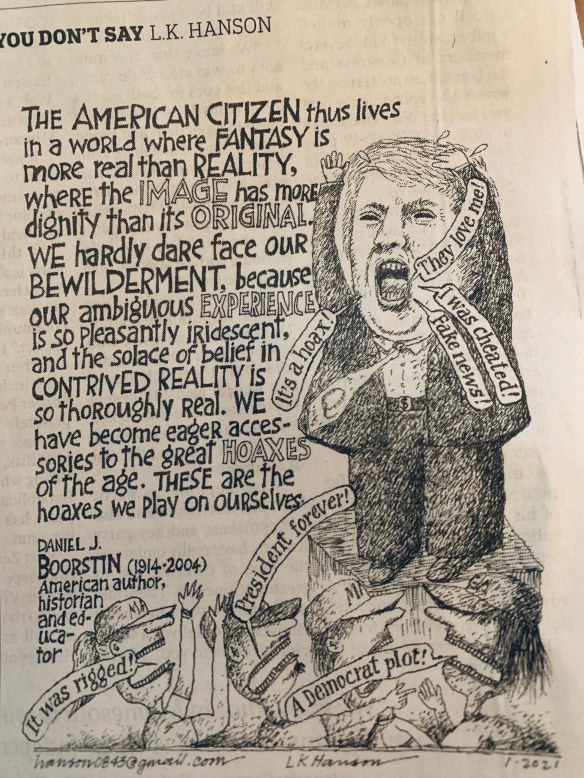 YOU DON'T SAY L.K. HANSON
THE AMERICAN CITIZEN thus lives
in a world where FANTASY is
more real than REALITY,
where the IMAGE has more
dignity than its ORIGINAL.
WE hardly dare face OUR
BEWILDERMENT, because
our ambiguous EXPERIENCE
is so pleasantly iridescent,
and the solace of belief in
CONTRIVED REALITY is
so thoroughly real. WE
have become eager acces-
sories to the great HOAXES
of the age. THESE are the
hoaxes we play on ourselves.
DANIEL J.
BOORSTIN (1914-2004)
American author,
historian
and ed-
uca-
tor
They love me!
I was cheated!
Fake news!
It's a hoax!
$
President forever!
It was rigged!
A Democrat plot!
MA
MA
GA
L K Hanson
1·2021